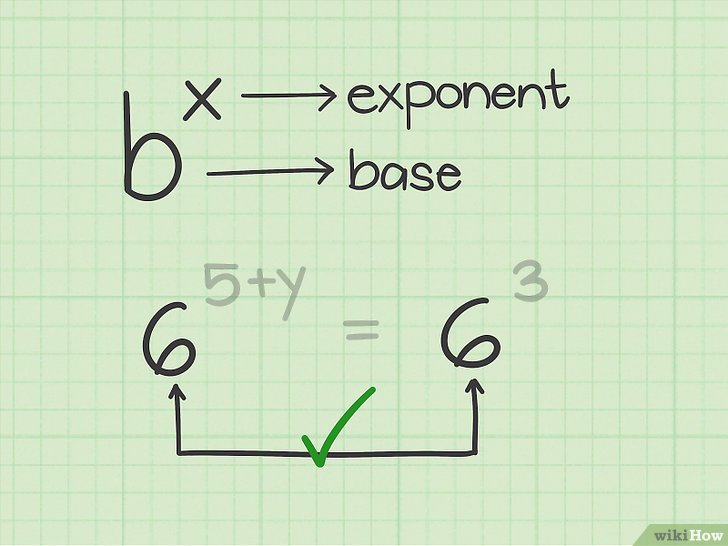 bˣ → exponent
→ base
6⁵⁺ʸ = 6³
wikiHow